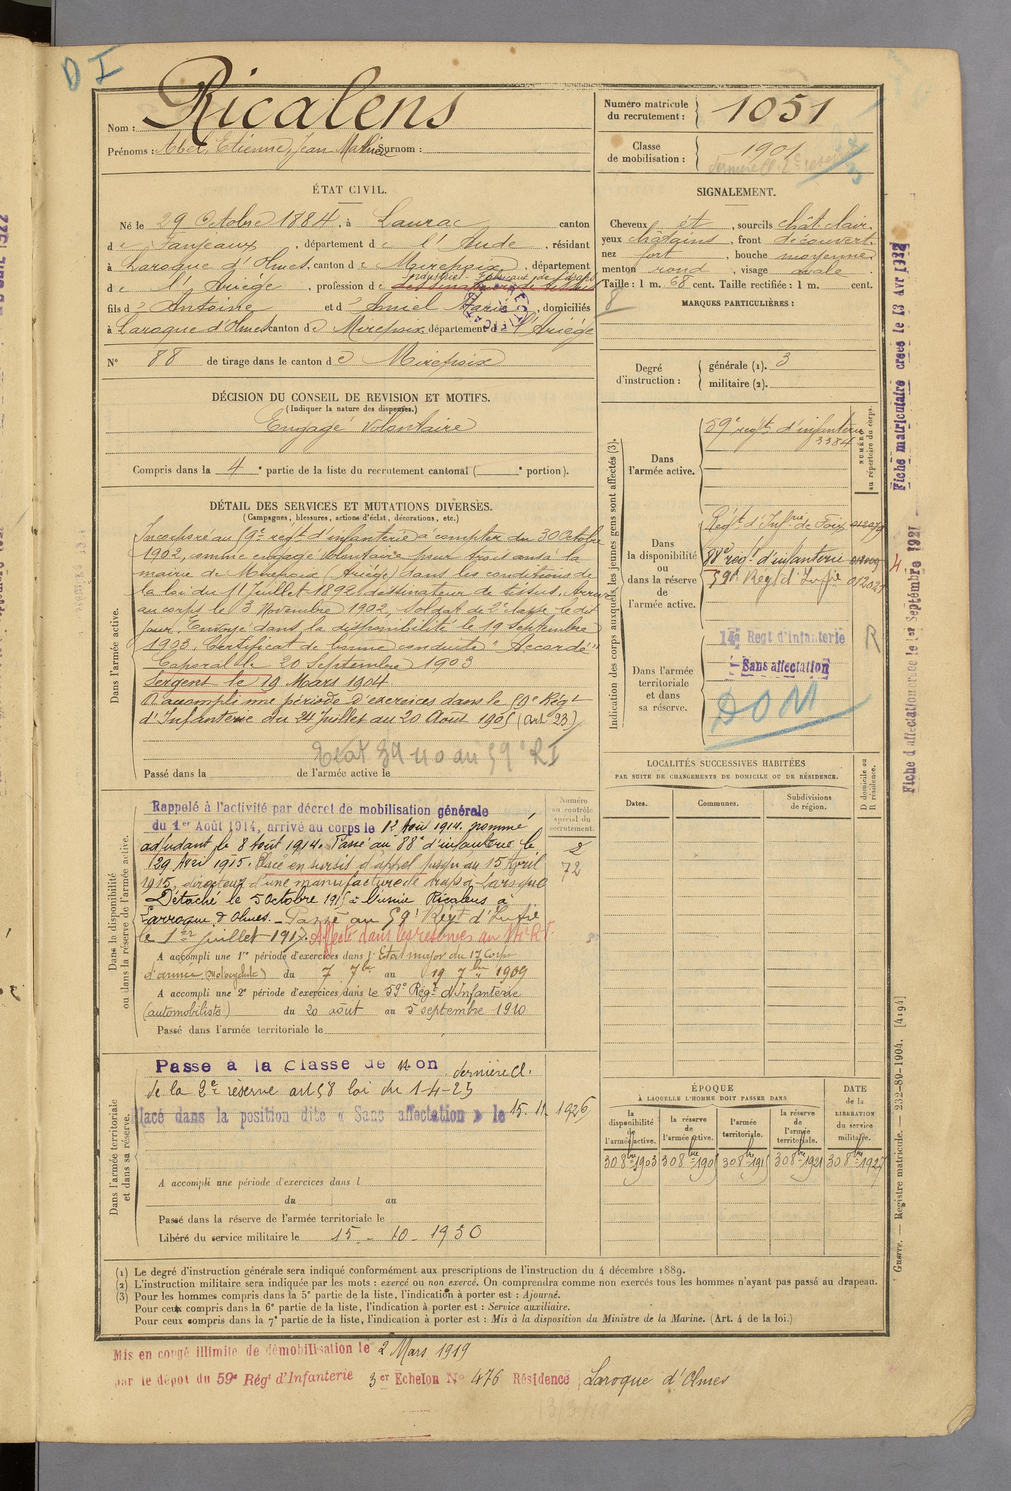 D I
Nom : Ricalens
Prénoms : Abel, Etienne, Jean Surnom :
Numéro matricule du recrutement : 1051
Classe de mobilisation : 1901
ÉTAT CIVIL.
Né le 29 Octobre 1884, à Laurac canton
de Fanjeaux, département de l'Aude, résidant
à Laroque d'Olmes, canton de Mirepoix, département
de l'Ariége, profession de dessinateur de tissus
fils d' Antoine et d' Amiel Marie, domiciliés
à Laroque d'Olmes canton de Mirepoix, département de l'Ariége
N° 88 de tirage dans le canton de Mirepoix
SIGNALEMENT.
Cheveux et, sourcils chât. clair,
yeux châtains, front découvert,
nez fort, bouche moyenne,
menton rond, visage ovale
Taille : 1 m. 68 cent. Taille rectifiée : 1 m. cent.
8
MARQUES PARTICULIÈRES :
Degré d'instruction : générale (1). 3
militaire (2).
DÉCISION DU CONSEIL DE REVISION ET MOTIFS.
(Indiquer la nature des dispenses.)
Engagé Volontaire
Compris dans la 4e partie de la liste du recrutement cantonal ( e portion).
DÉTAIL DES SERVICES ET MUTATIONS DIVERSES.
(Campagnes, blessures, actions d'éclat, décorations, etc.)
Dans l'armée active.
Incorporé au 59e regt d'infanterie à compter du 30 Octobre
1902, comme engagé volontaire pour trois ans à la
mairie de Mirepoix (Ariége) dans les conditions de
la loi du 11 juillet 1892, dessinateur de tissus. Arrivé
au corps le 3 Novembre 1902, Soldat de 2e classe le dit
jour. Envoyé dans la disponibilité le 19 Septembre
1903. Certificat de bonne conduite "Accordé"
Caporal le 20 Septembre 1903
Sergent le 19 Mars 1904
A accompli une période d'exercices dans le 59e Régt
d'Infanterie du 24 juillet au 20 Août 1905 (art. 23)
au 59e RI
Passé dans la de l'armée active le
Indication des corps auxquels les jeunes gens sont affectés (3).
NUMÉRO au répertoire du corps.
Dans l'armée active.
59e regt d'infanterie
3384
Dans la disponibilité ou dans la réserve de l'armée active.
Régt d'Infrie de Foix
88e regt d'infanterie
59e Régt d'Infie
Dans l'armée territoriale et dans sa réserve.
14e Regt d'infanterie
R
Sans affectation
DOM
Fiche matriculaire créée le 13 Avr 1922
Fiche d'affectation créée le 1er Septembre 1921
Dans la disponibilité ou dans la réserve de l'armée active.
Numéro au contrôle spécial du recrutement.
2
72
Rappelé à l'activité par décret de mobilisation générale
du 1er Août 1914, arrivé au corps le 12 Août 1914. nommé
adjudant le 8 août 1914. Passé au 88e d'infanterie le
29 Avril 1915. Placé en sursis d'appel jusqu'au 15 Avril
1915, directeur d'une manufacture de draps à Laroque
Détaché le 5 Octobre 1915 à l'usine Ricalens à
Larroque d'Olmes. Passé au 59e Régt d'Infie
le 1er juillet 1917. Affecté dans les réserves au
A accompli une 1re période d'exercices dans l'Etat major du 17 Corps
d'armée (Motocycliste) du 7 7bre au 19 7bre 1909
A accompli une 2e période d'exercices dans le 59e Régt d'Infanterie
(automobiliste) du 20 août au 5 septembre 1910
Passé dans l'armée territoriale le
LOCALITÉS SUCCESSIVES HABITÉES
PAR SUITE DE CHANGEMENTS DE DOMICILE OU DE RÉSIDENCE.
D domicile ou R résidence.
Dates. Communes. Subdivisions de région.
Dans l'armée territoriale et dans sa réserve.
Passé à la Classe de M. on dernière cl.
de la 2e réserve art 58 loi du 1-4-23
Placé dans la position dite « Sans affectation » le 15. 11. 1926
A accompli une période d'exercices dans l
du au
Passé dans la réserve de l'armée territoriale le
Libéré du service militaire le 15 - 10 - 1930
ÉPOQUE
À LAQUELLE L'HOMME DOIT PASSER DANS
la disponibilité de l'armée active.
la réserve de l'armée active.
l'armée territoriale.
la réserve de l'armée territoriale.
DATE de la LIBÉRATION du service militaire.
30 8bre 1903
30 8bre 1905
30 8bre 1915
30 8bre 1921
30 8bre 1927
Guerre. — Registre matricule. — 232-89-1904. [4194]
(1) Le degré d'instruction générale sera indiqué conformément aux prescriptions de l'instruction du 4 décembre 1889.
(2) L'instruction militaire sera indiquée par les mots : exercé ou non exercé. On comprendra comme non exercés tous les hommes n'ayant pas passé au drapeau.
(3) Pour les hommes compris dans la 5e partie de la liste, l'indication à porter est : Ajourné.
Pour ceux compris dans la 6e partie de la liste, l'indication à porter est : Service auxiliaire.
Pour ceux compris dans la 7e partie de la liste, l'indication à porter est : Mis à la disposition du Ministre de la Marine. (Art. 4 de la loi.)
Mis en congé illimité de démobilisation le 2 Mars 1919
par le dépôt du 59e Régt d'Infanterie 3er Echelon N° 476 Résidence Laroque d'Olmes